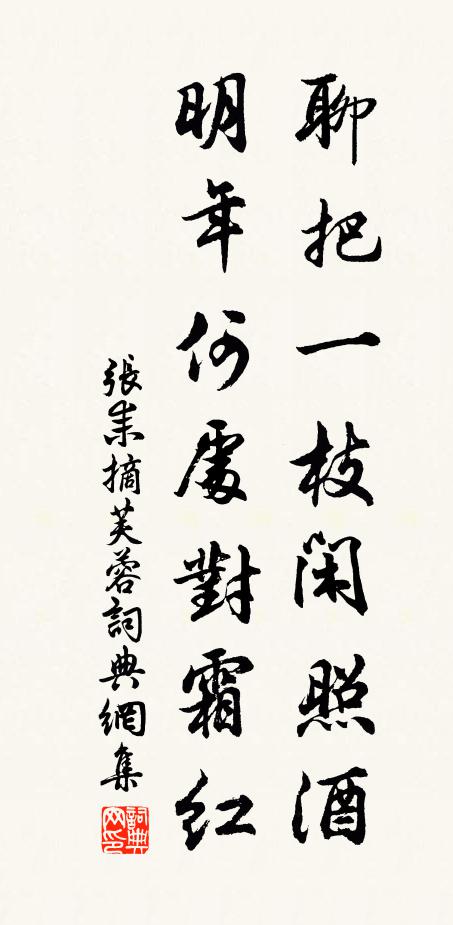 聊把一枝閑照酒
明年何處對霜紅
張耒摘芙蓉詞典網集
詞典網印